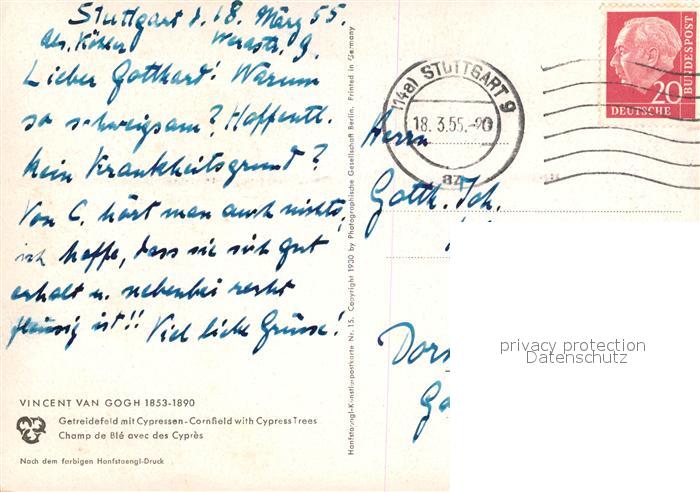 Stuttgart d. 18. März 55.
Abs. Köhler Werastr. 9.
Lieber Gotthard! Warum
so schweigsam? Hoffentl.
kein Krankheitsgrund?
Von C. hört man auch nichts,
ich hoffe, dass sie sich gut
erhält u. nebenbei recht
fleissig ist!! Viel liebe Grüsse!
VINCENT VAN GOGH 1853-1890
Getreidefeld mit Cypressen - Cornfield with Cypress Trees
Champ de Blé avec des Cyprès
Nach dem farbigen Hanfstaengl-Druck
Hanfstaengl-Künstlerpostkarte Nr. 15. Copyright 1930 by Photographische Gesellschaft Berlin. Printed in Germany
(14a) STUTTGART 9
18. 3.55.-20
az
20
DEUTSCHE
BUNDESPOST
Herrn
Gotth. Joh.
privacy protection
Datenschutz